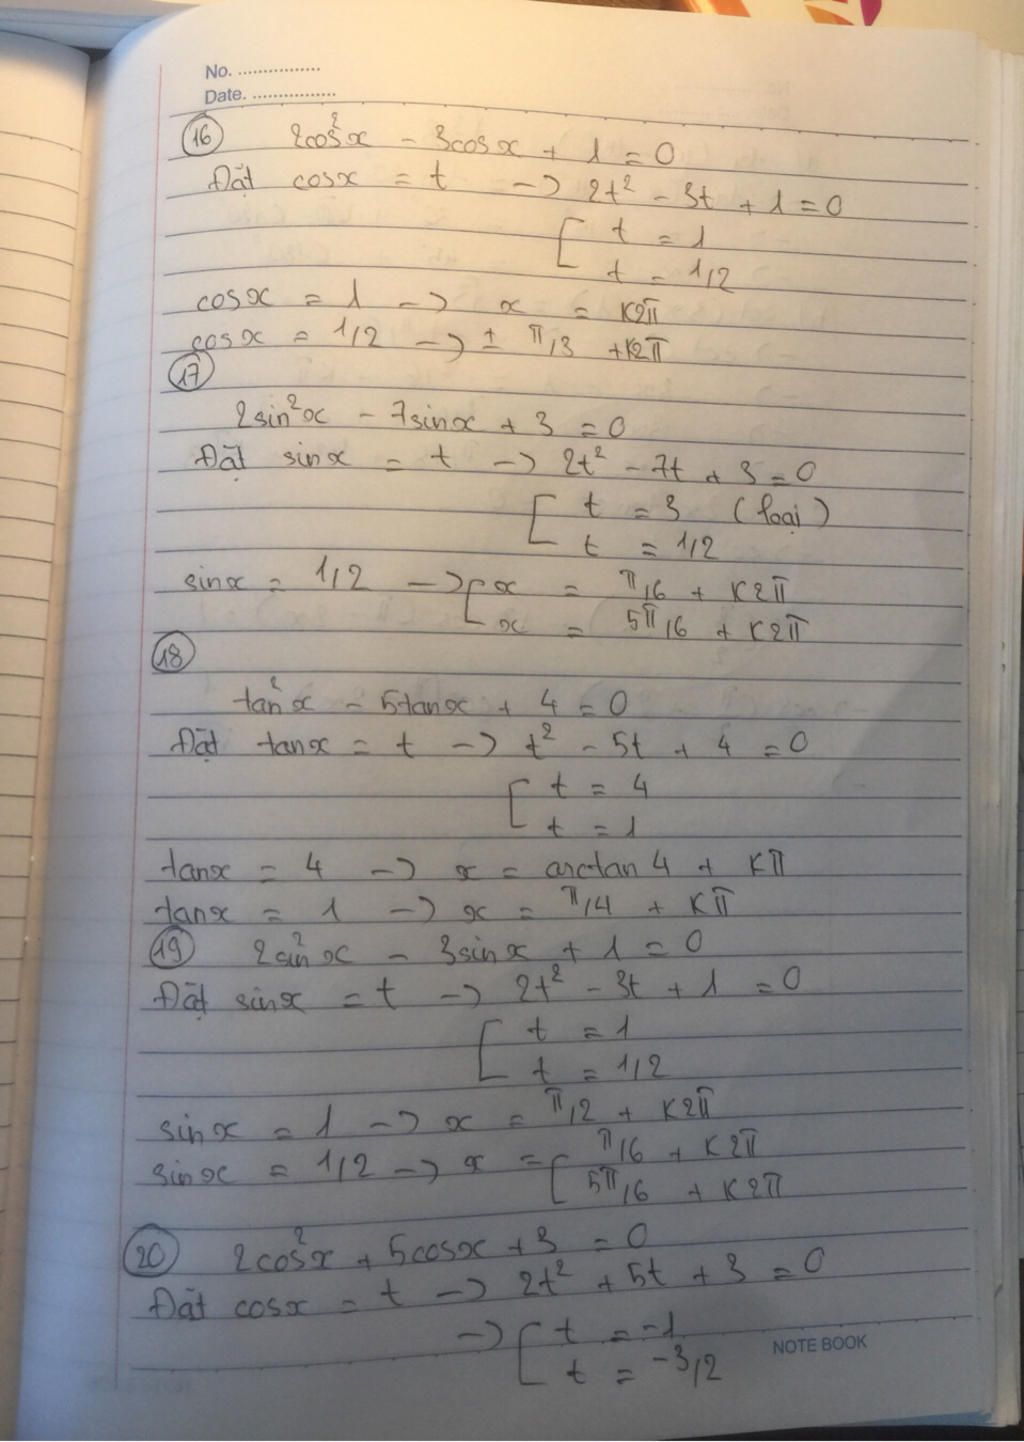 No. ................
Date. ................
16 2cos²x - 3cosx + 1 = 0
Đặt cosx = t -> 2t² - 3t + 1 = 0
[ t = 1
t = 1/2
cosx = 1 -> x = k2π
cosx = 1/2 -> ± π/3 + k2π
17
2sin²x - 7sinx + 3 = 0
Đặt sinx = t -> 2t² - 7t + 3 = 0
[ t = 3 (loại)
t = 1/2
sinx = 1/2 -> [ x = π/6 + k2π
x = 5π/6 + k2π
18
tan²x - 5tanx + 4 = 0
Đặt tanx = t -> t² - 5t + 4 = 0
[ t = 4
t = 1
tanx = 4 -> x = arctan4 + kπ
tanx = 1 -> x = π/4 + kπ
19 2sin²x - 3sinx + 1 = 0
Đặt sinx = t -> 2t² - 3t + 1 = 0
[ t = 1
t = 1/2
sinx = 1 -> x = π/2 + k2π
sinx = 1/2 -> x = [ π/6 + k2π
5π/6 + k2π
20 2cos²x + 5cosx + 3 = 0
Đặt cosx = t -> 2t² + 5t + 3 = 0
-> [ t = -1
t = -3/2
NOTE BOOK